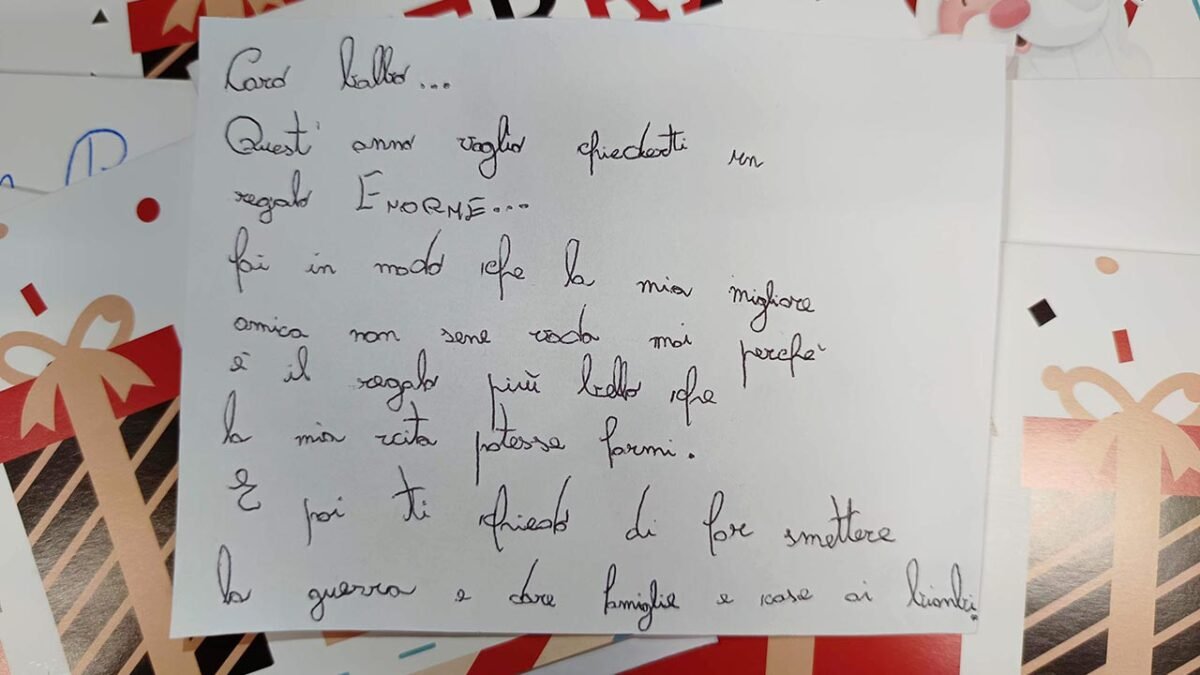 Caro babbo...
Quest' anno voglio chiederti un
regalo ENORME...
fai in modo che la mia migliore
amica non sene vada mai perchè
è il regalo più bello che
la mia vita potesse farmi.
E poi ti chiedo di far smettere
la guerra e dare famiglie e case ai bimbi.